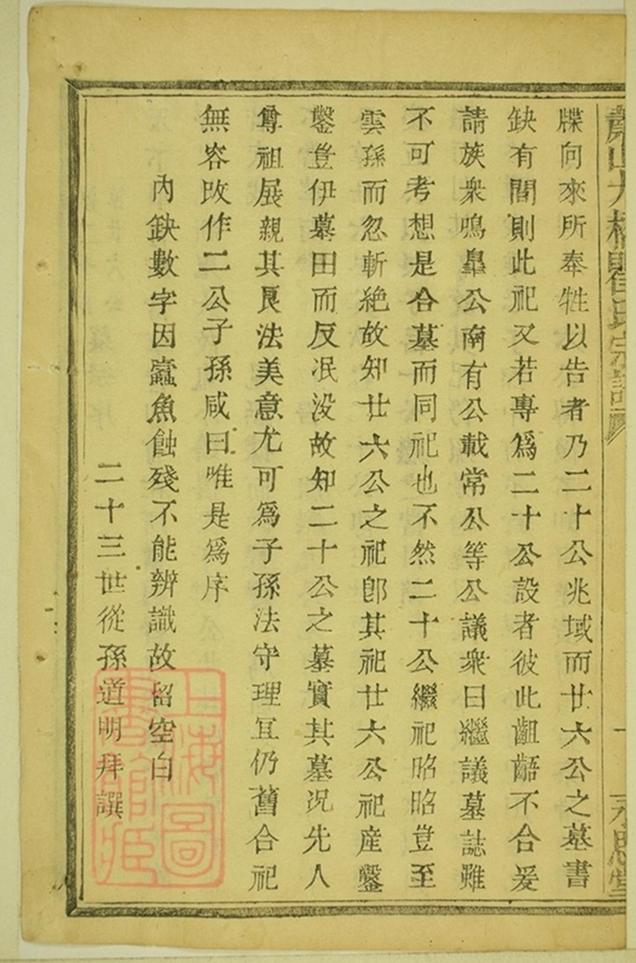 蕭山大橋
氏宗譜
一
永思堂
牒向來所奉牲以告者乃二十公兆域而廿六公之墓書
缺有間則此祀又若專爲二十公設者彼此齟齬不合爰
請族衆鳴臯公南有公載常公等公議衆曰繼議墓誌雖
不可考想是合墓而同祀也不然二十公繼祀昭昭豈至
雲孫而忽斬絶故知廿六公之祀卽其祀廿六公祀產鑿
鑿豈伊墓田而反泯没故知二十公之墓實其墓况先人
尊祖展親其良法美意尤可爲子孫法守理宜仍舊合祀
無容改作二公子孫咸曰唯是爲序
内缺數字因蠹魚蝕殘不能辨識故留空白
二十三世從孫道明拜譔
上海圖書館